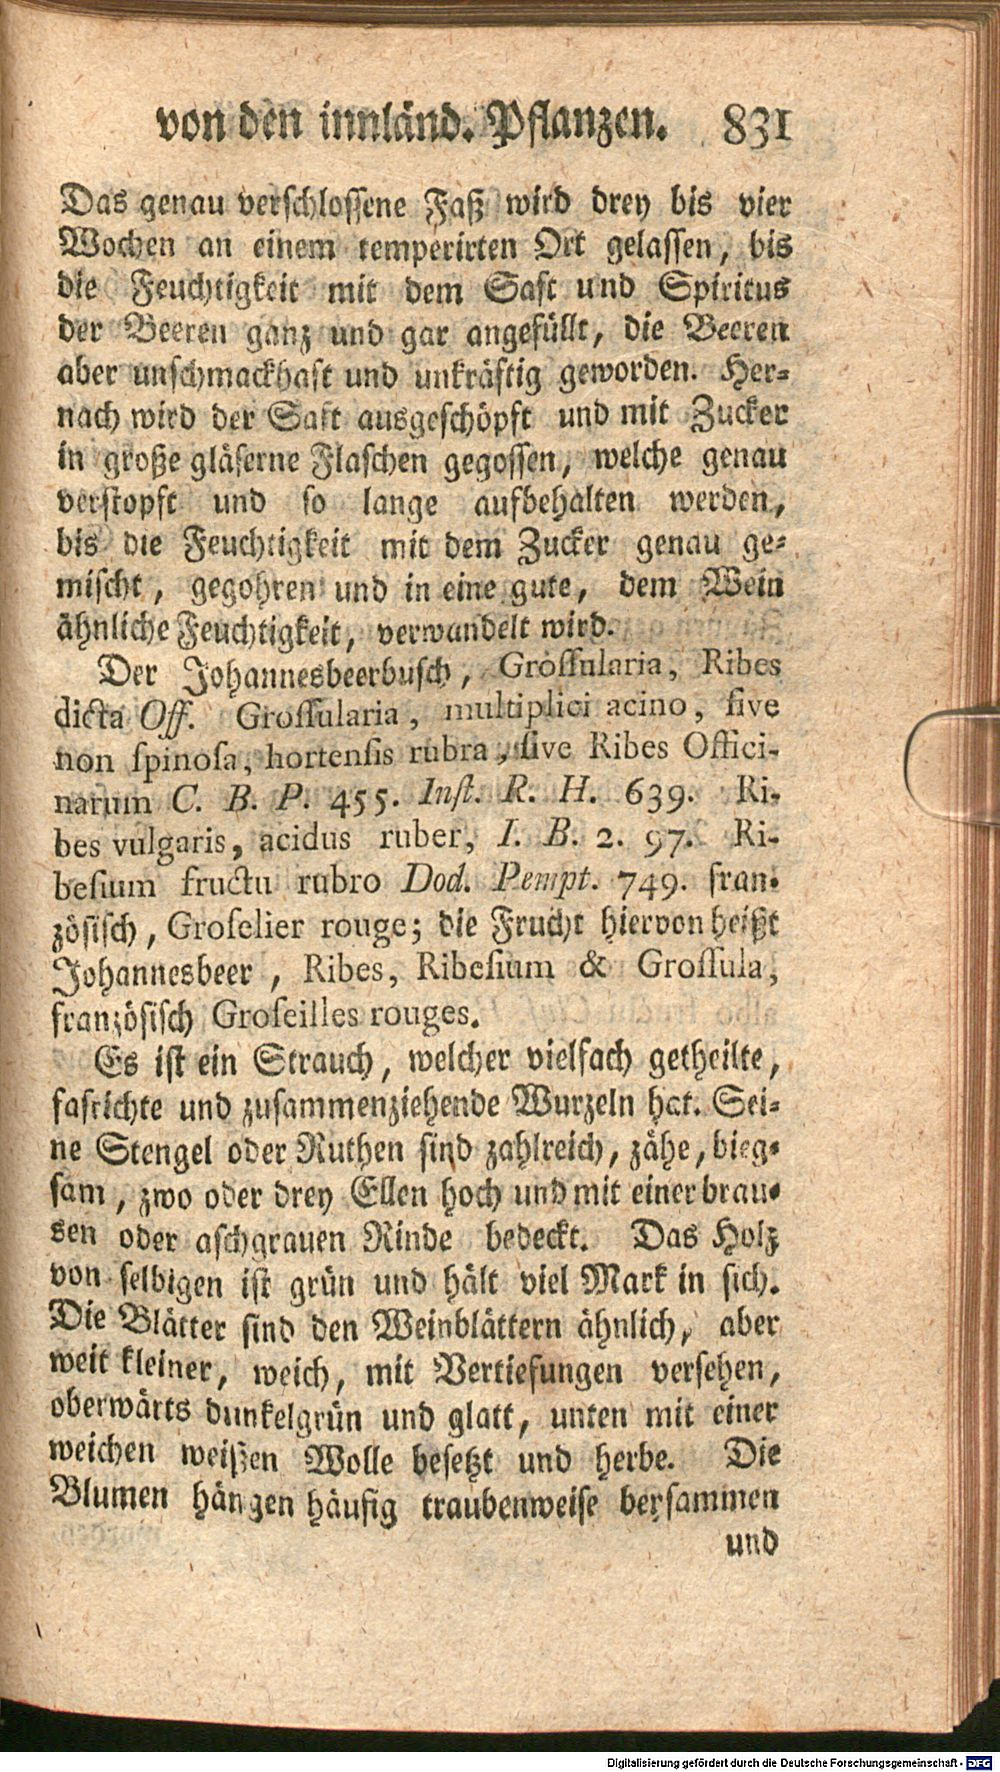 von den innländ. Pflanzen. 831
Das genau verschlossene Faß wird drey bis vier
Wochen an einem temperirten Ort gelassen, bis
die Feuchtigkeit mit dem Saft und Spiritus
der Beeren ganz und gar angefüllt, die Beeren
aber unschmackhaft und unkräftig geworden. Her-
nach wird der Saft ausgeschöpft und mit Zucker
in große gläserne Flaschen gegossen, welche genau
verstopft und so lange aufbehalten werden,
bis die Feuchtigkeit mit dem Zucker genau ge-
mischt, gegohren und in eine gute, dem Wein
ähnliche Feuchtigkeit, verwandelt wird.
Der Johannesbeerbusch, Grossularia, Ribes
dicta Off. Grossularia, multiplici acino, sive
non spinosa, hortensis rubra, sive Ribes Offici-
narum C. B. P. 455. Inst. R. H. 639. Ri-
bes vulgaris, acidus ruber, I. B. 2. 97. Ri-
besium fructu rubro Dod. Pempt. 749. fran-
zösisch, Groselier rouge; die Frucht hiervon heißt
Johannesbeer, Ribes, Ribesium & Grossula,
französisch Groseilles rouges.
Es ist ein Strauch, welcher vielfach getheilte,
fasrichte und zusammenziehende Wurzeln hat. Sei-
ne Stengel oder Ruthen sind zahlreich, zähe, bieg-
sam, zwo oder drey Ellen hoch und mit einer brau-
sen oder aschgrauen Rinde bedeckt. Das Holz
von selbigen ist grün und hält viel Mark in sich.
Die Blätter sind den Weinblättern ähnlich, aber
weit kleiner, weich, mit Vertiefungen versehen,
oberwärts dunkelgrün und glatt, unten mit einer
weichen weißen Wolle besetzt und herbe. Die
Blumen hängen häufig traubenweise beysammen
und
Digitalisierung gefördert durch die Deutsche Forschungsgemeinschaft - DFG